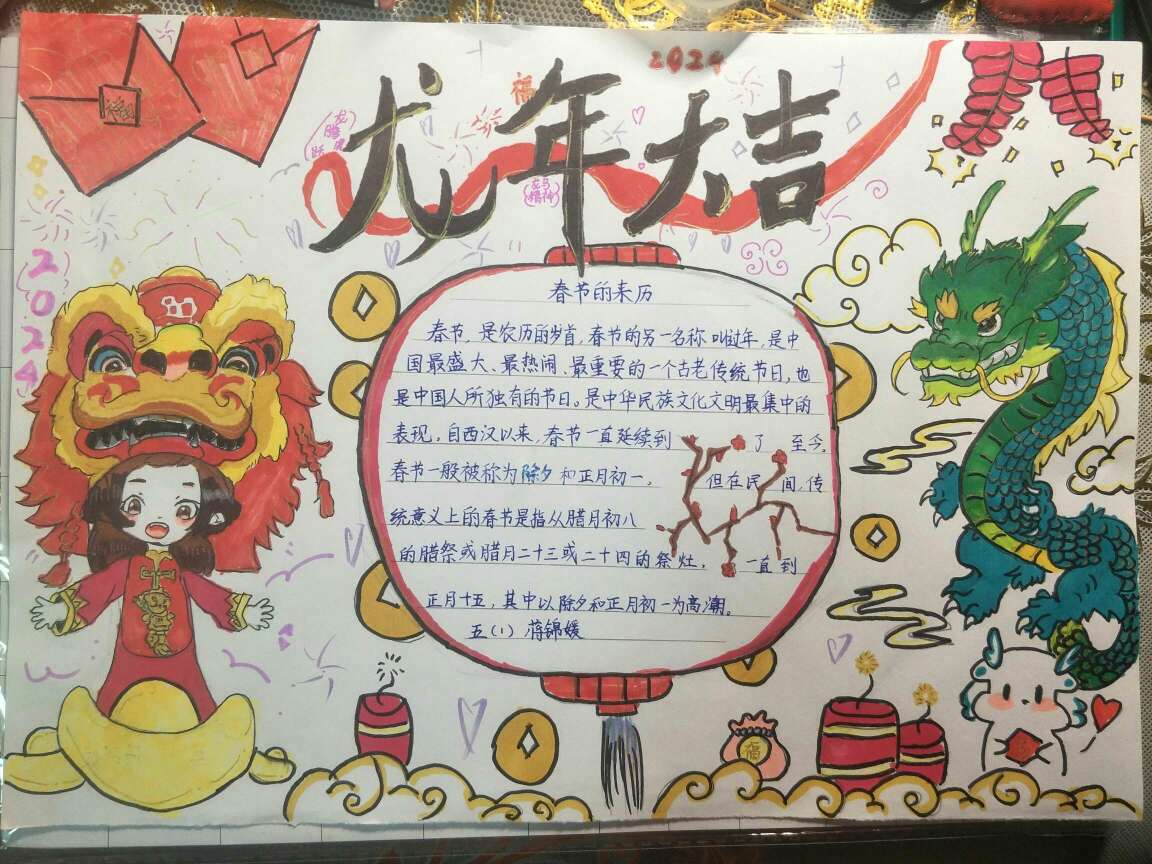 2024
福
龙年大吉
龙腾虎跃
龙马精神
2024
春节的来历
春节,是农历的岁首,春节的另一名称叫过年,是中
国最盛大、最热闹、最重要的一个古老传统节日,也
是中国人所独有的节日。是中华民族文化文明最集中的
表现,自西汉以来,春节一直延续到了 至今,
春节一般被称为除夕和正月初一, 但在民间,传
统意义上的春节是指从腊月初八
的腊祭或腊月二十三或二十四的祭灶, 一直到
正月十五,其中以除夕和正月初一为高潮。
五(1) 蒋锦媛
福